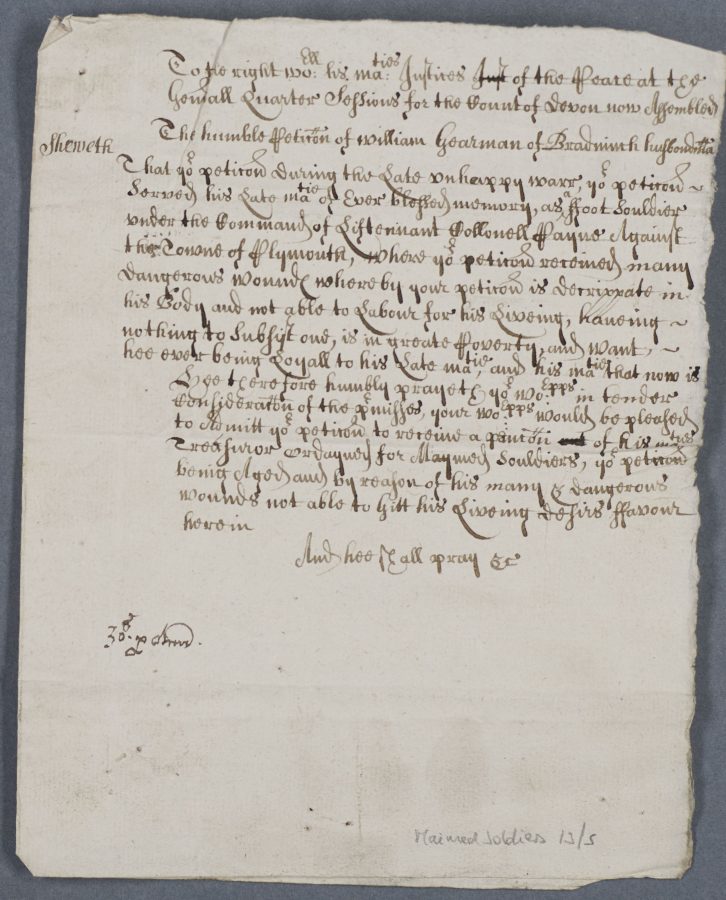 To the right wo:ell his ma:ties Justices Just of the Peace at the
Genrall Quarter Sessions for the Count of Devon now Assembled
The humble Peticon of William Hearman of Bradninch husbondma
Sheweth
That yor peticonr During the Late vnhappy warr, yor peticonr ~
Served his Late matie of Ever blessed memory, as a ffoot Souldier
vnder the Command of Liftennant Collonell Payne Against
the Towne of Plymouth, where yor peticonr received many
dangerous wounds whereby your peticonr is decrippate in
his Body and not able to Labour for his Liveing, haueing ~
nothing to Subsist one, is in greate Poverty, and want, ~
hee ever being Loyall to his Late matie and his matie that now is
Hee therefore humbly prayeth yor wo:pps in tender
Consideracon of the pmisses, your wopps would be pleased
to Admitt yor peticonr to receive a pencon out of his maties
Treasuror ordayned for Maymed Souldiers, yor peticonr
being Aged and by reason of his many & dangerous
wounds not able to gitt his Liveing desirs ffavour
herein
And hee shall pray &c
30s p Annu.
Maimed Soldiers 13/5